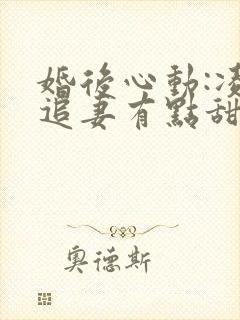 婚後心動:凌
追妻有點甜
奧德斯